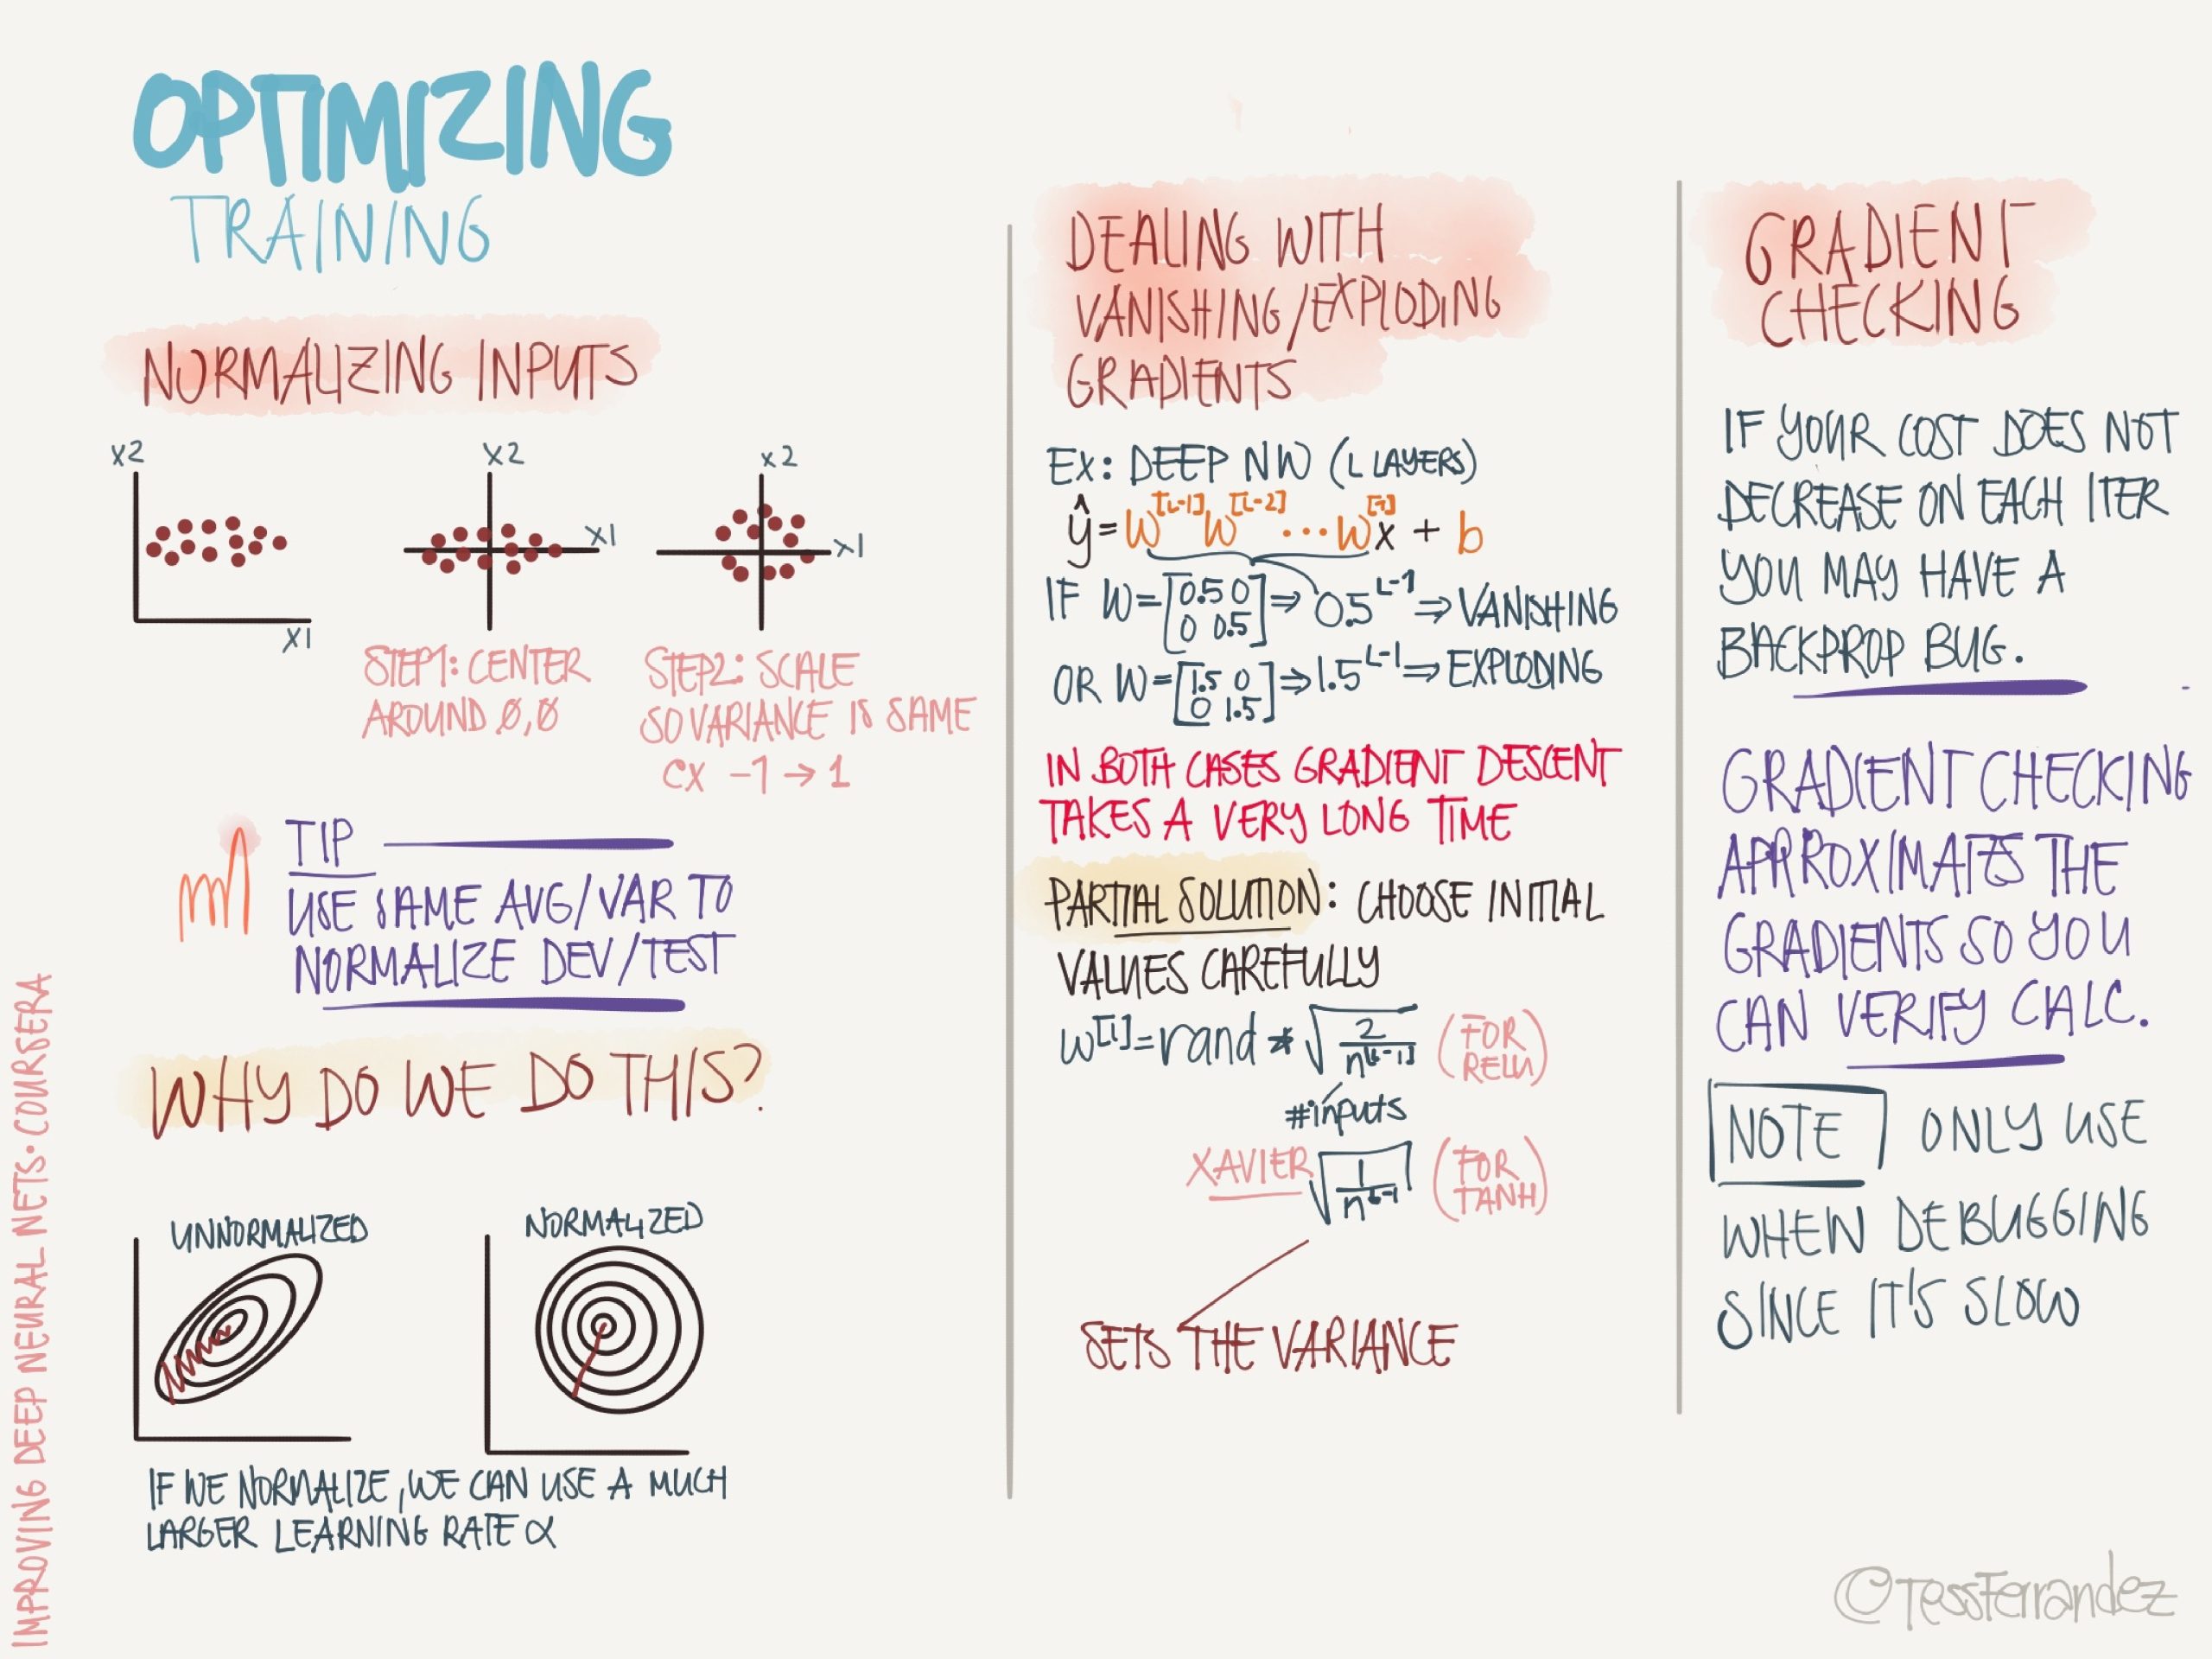 OPTIMIZING
TRAINING
NORMALIZING INPUTS
X2
X1
X2
X1
X2
X1
STEP1: CENTER
AROUND 0,0
STEP2: SCALE
SO VARIANCE IS SAME
EX -1 → 1
TIP
USE SAME AVG/VAR TO
NORMALIZE DEV/TEST
WHY DO WE DO THIS?
UNNORMALIZED
NORMALIZED
IF WE NORMALIZE, WE CAN USE A MUCH
LARGER LEARNING RATE α
DEALING WITH
VANISHING/EXPLODING
GRADIENTS
EX: DEEP NW (L LAYERS)
ŷ = W[L-1] W[L-2] ... W[1] x + b
IF W = [0.5 0 ⇒ 0.5 L-1 ⇒ VANISHING
0 0.5]
OR W = [1.5 0 ⇒ 1.5 L-1 ⇒ EXPLODING
0 1.5]
IN BOTH CASES GRADIENT DESCENT
TAKES A VERY LONG TIME
PARTIAL SOLUTION: CHOOSE INITIAL
VALUES CAREFULLY
W[l] = rand * √2/n[l-1] (FOR RELU)
#inputs
XAVIER √1/n l-1 (FOR TANH)
SETS THE VARIANCE
GRADIENT
CHECKING
IF YOUR COST DOES NOT
DECREASE ON EACH ITER
YOU MAY HAVE A
BACKPROP BUG.
GRADIENT CHECKING
APPROXIMATES THE
GRADIENTS SO YOU
CAN VERIFY CALC.
NOTE ONLY USE
WHEN DEBUGGING
SINCE IT'S SLOW
IMPROVING DEEP NEURAL NETS · COURSERA
©TessFerrandez